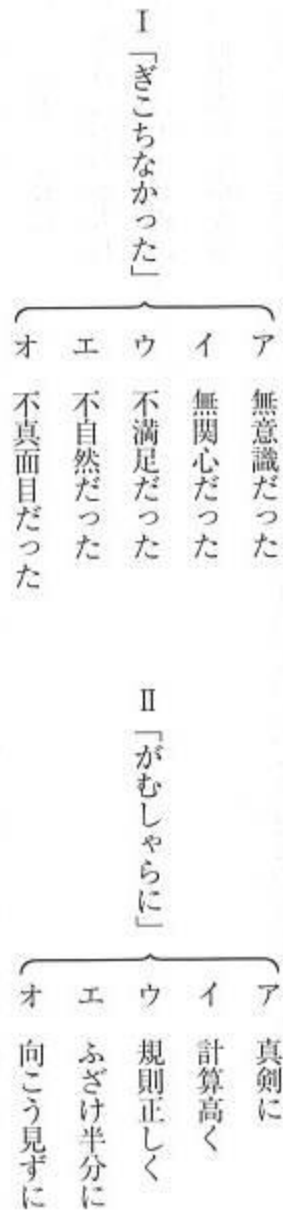 Ⅰ「ぎこちなかった」
ア　無意識だった
イ　無関心だった
ウ　不満足だった
エ　不自然だった
オ　不真面目だった
Ⅱ「がむしゃらに」
ア　真剣に
イ　計算高く
ウ　規則正しく
エ　ふざけ半分に
オ　向こう見ずに